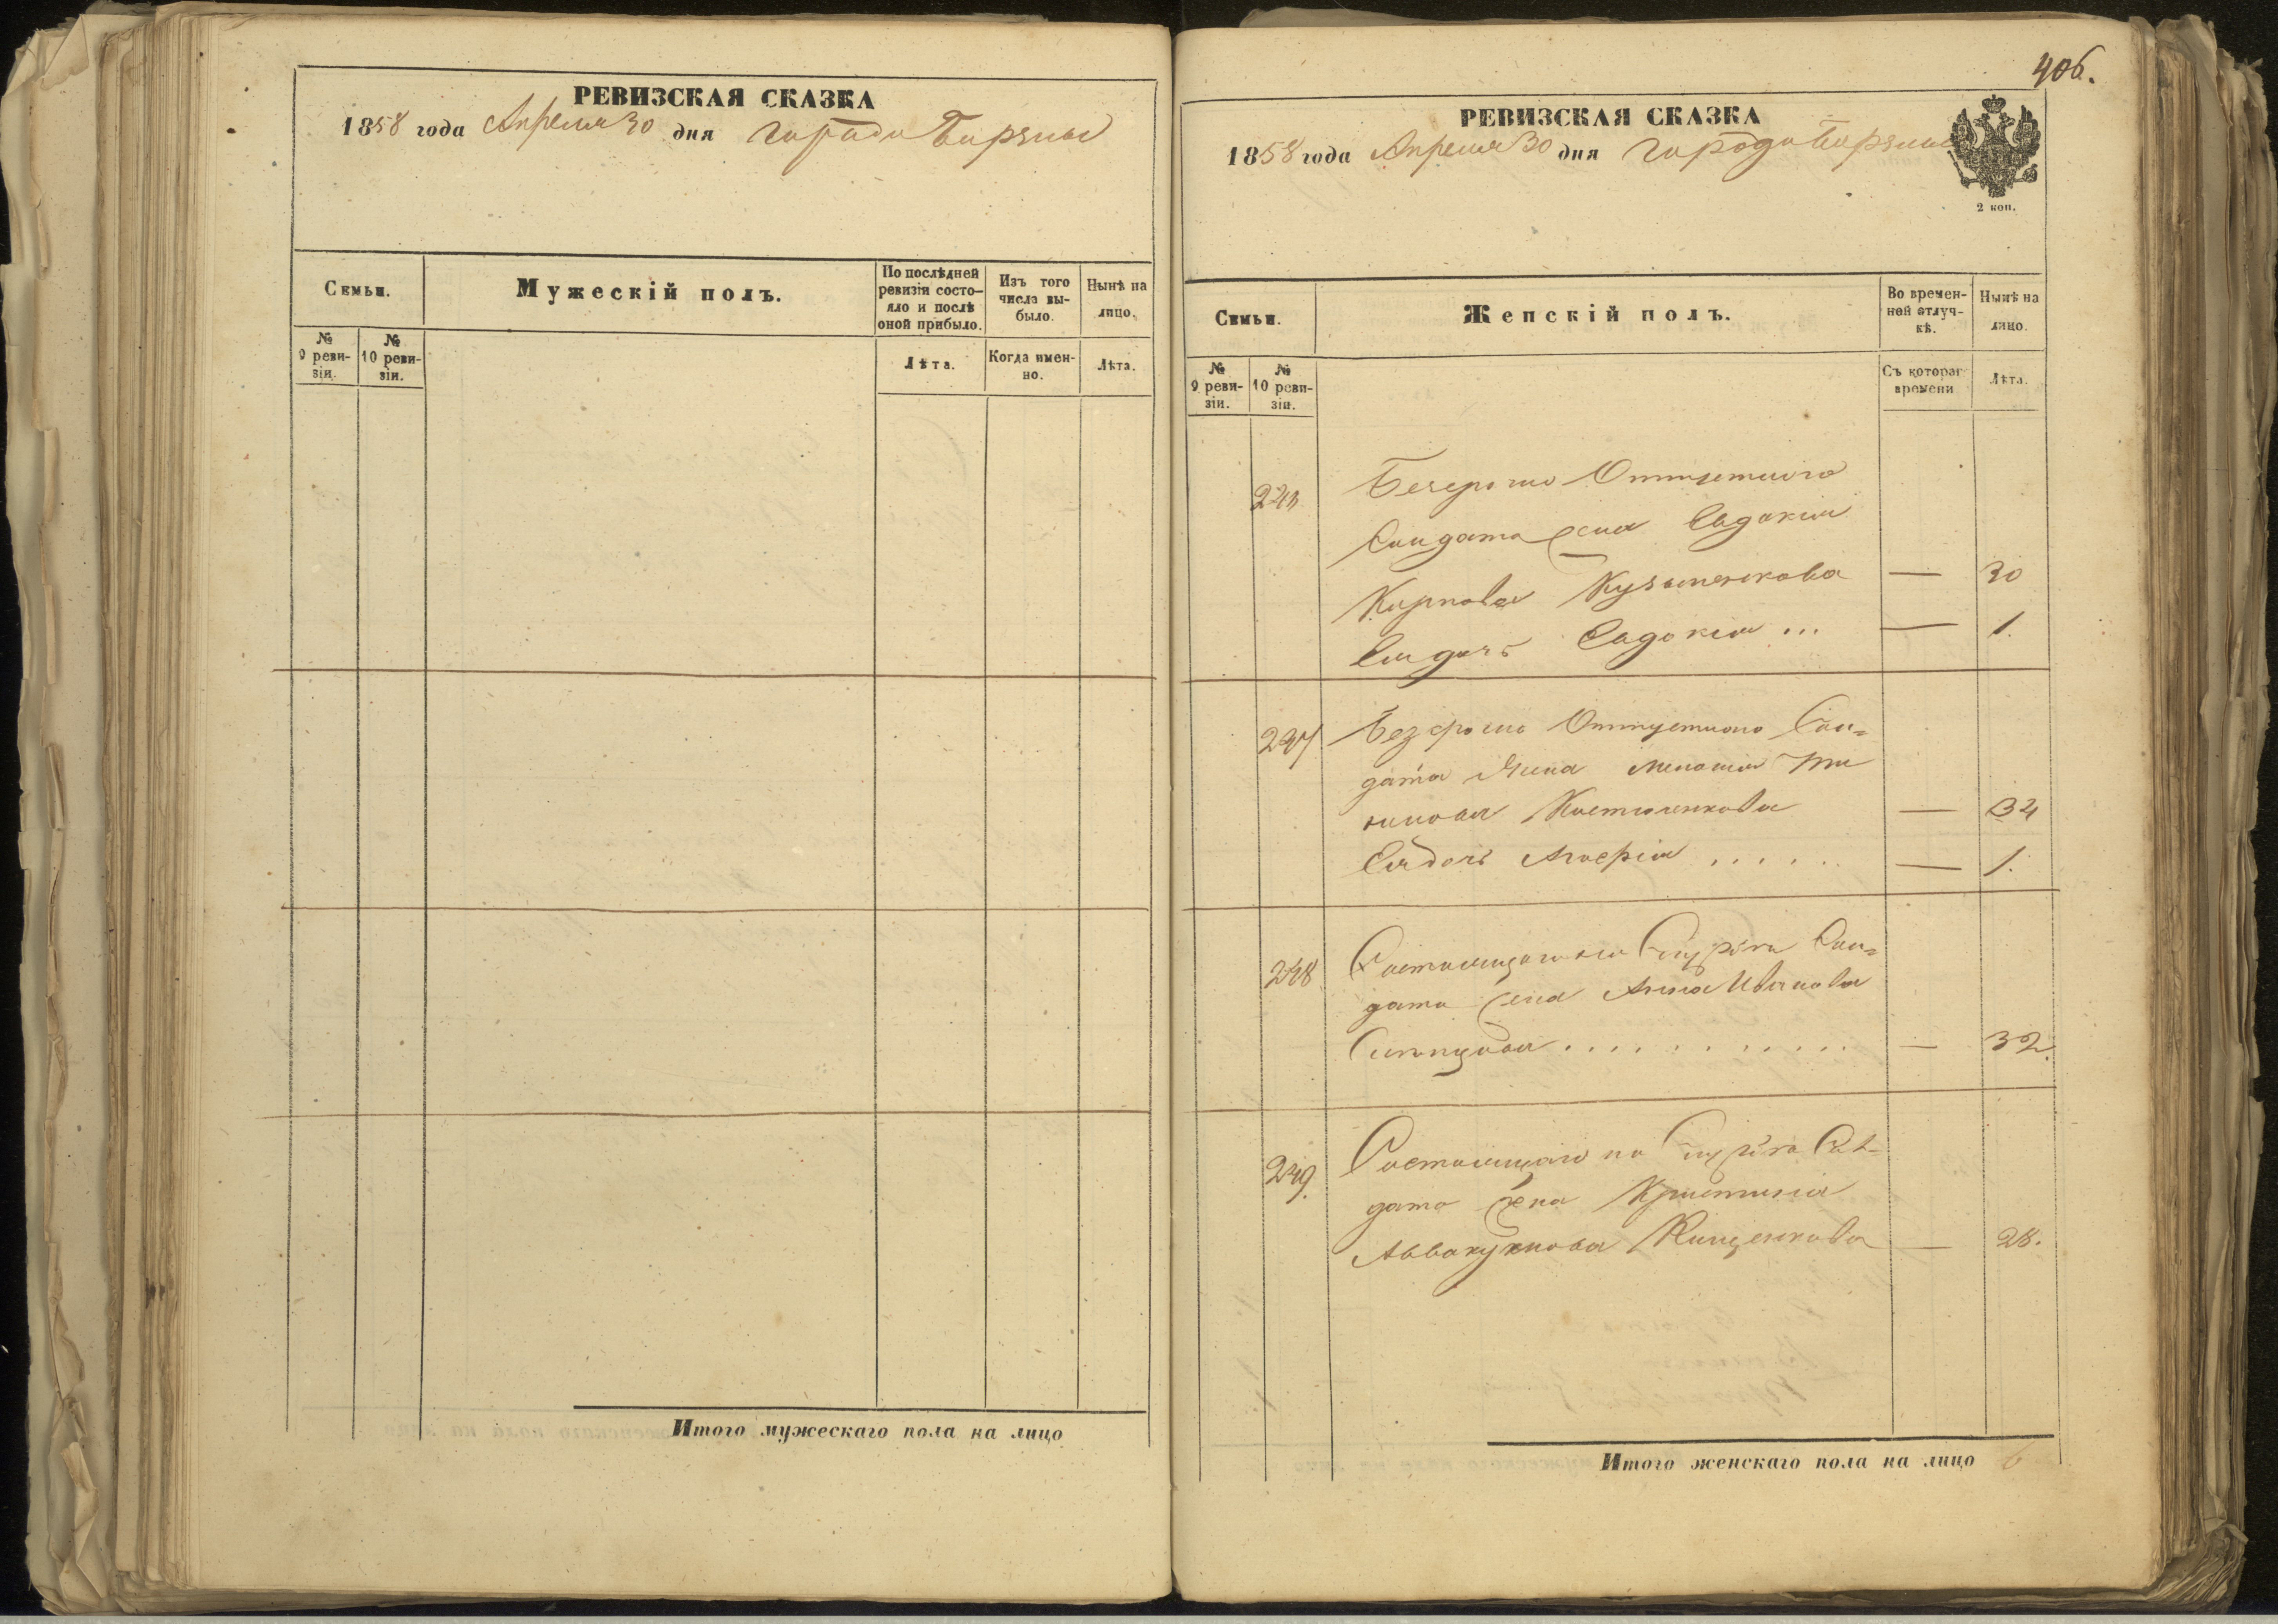 РЕВИЗСКАЯ СКАЗКА
1858 года Апреля 30 дня города Борзны
Семьи.
Мужескій полъ.
По послѣдней ревизіи состо-
яло и послѣ
оной прибыло.
Изъ того
числа вы-
было.
Нынѣ на
лицо.
№
9 реви-
зіи.
№
10 реви-
зіи.
Лѣта.
Когда имен-
но.
Лѣта.
Итого мужескаго пола на лицо
406.
РЕВИЗСКАЯ СКАЗКА
1858 года Апреля 30 дня города Борзны
2 коп.
Семьи.
Женскій полъ.
Во времен-
ной отлуч-
кѣ.
Нынѣ на
лицо.
№
9 реви-
зіи.
№
10 реви-
зіи.
Съ котораго
времени
Лѣта.
Отпустного
Солдата жена Евдокия
Карпова Кузьменкова — 30
Ея дочь Евдокия ... — 1.
247 Безсрочно Отпустного Сол=
дата Жена
Костюченкова — 34
Ея дочь ...... — 1.
248 Состоящаго на Службѣ Сол=
дата жена Анна Иванова
............ — 32.
249. Состоящаго на Службѣ Сол-
дата жена Христина
Аввакумова Кищенкова — 28.
Итого женскаго пола на лицо 6